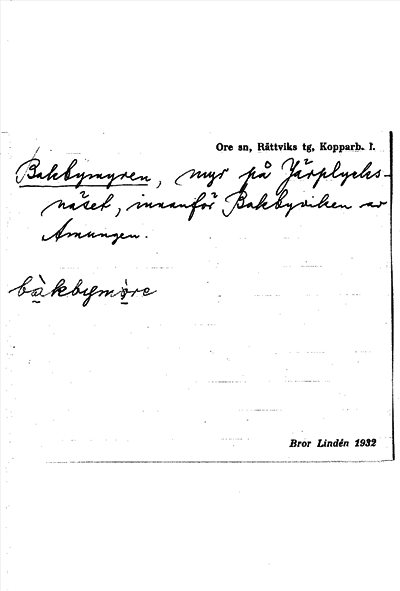 Ore sn, Rättviks tg, Kopparb. l.
Bakbymyren, myr på Järplycks-
näset, innanför Bakbyviken av
Amungen.
bàkbymỳre
Bror Lindén 1932